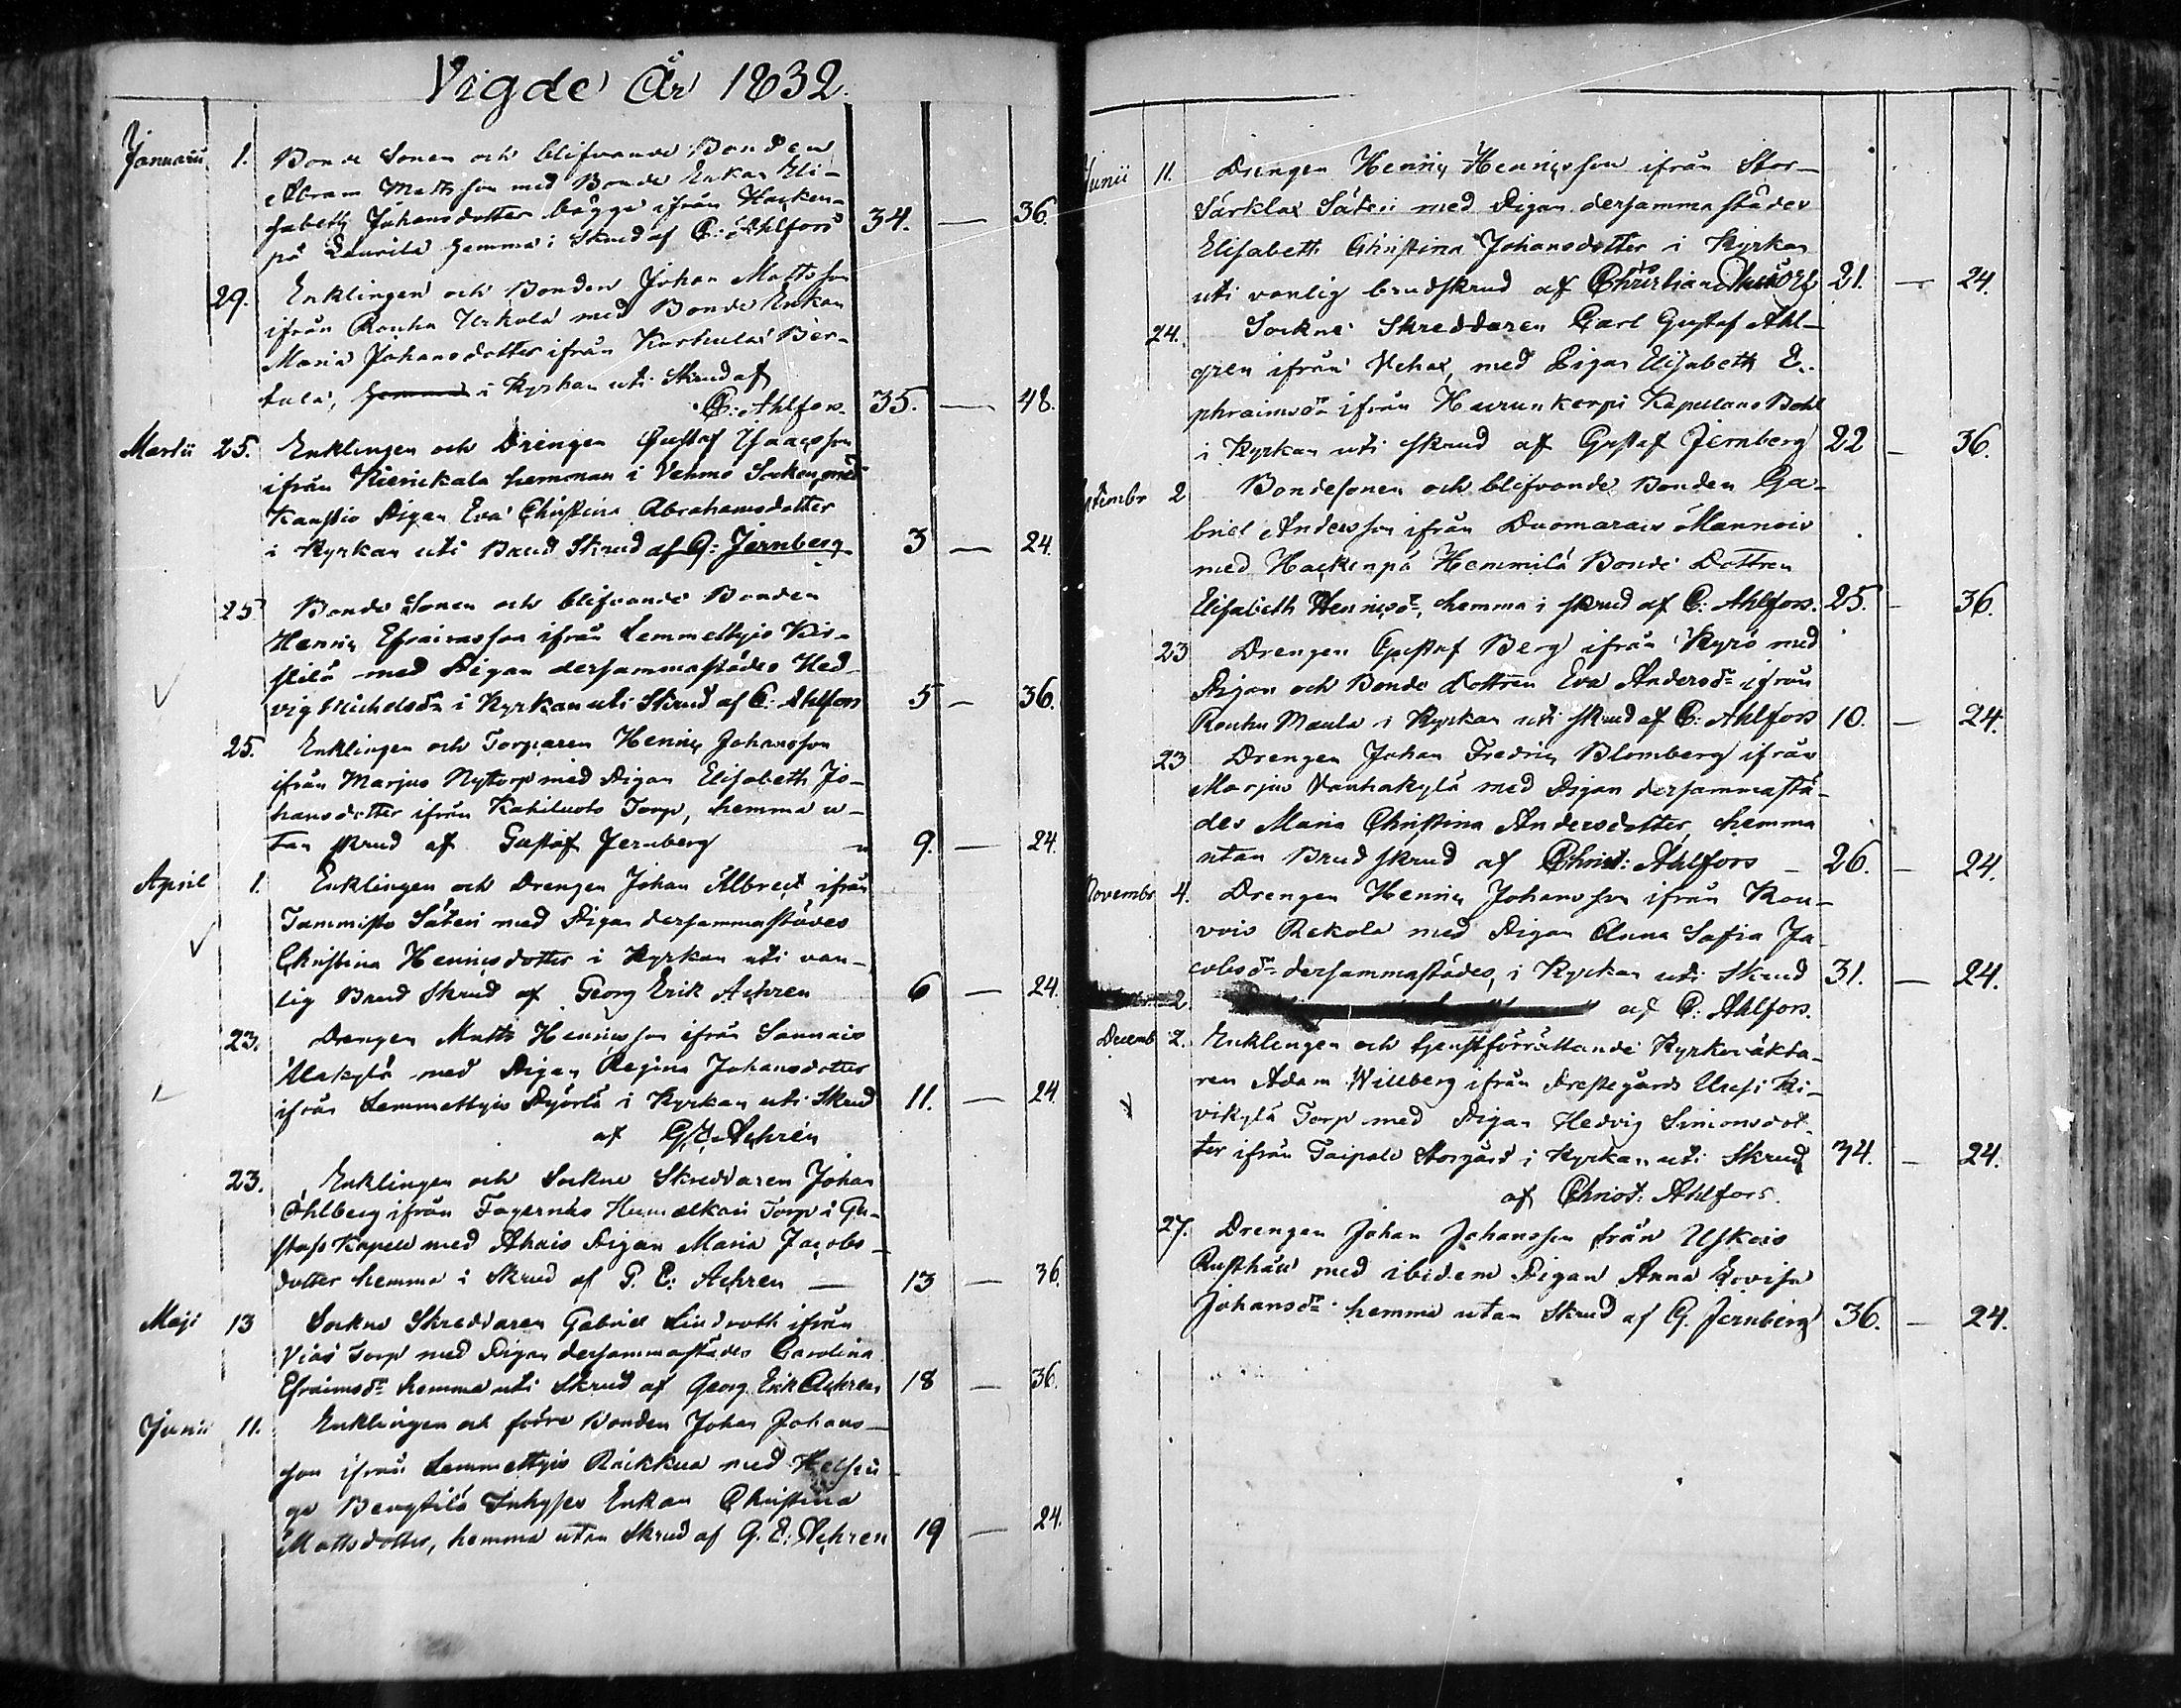 Vigde År 1832.
Januarii 1. Bonde Sonen och blifvande Bonden
Abram Mattsson med Bonde Enkan Eli-
sabeth Johansdotter bägge ifrån Hacken-
på Laurila hemma i Skrud af C: Ahlfors 34. — 36.
29. Enklingen och Bonden Johan Mattsson
ifrån Rouhu Uckola med Bonde Enkan
Maria Johansdotter ifrån Karhula Ber-
tula, i Kyrkan uti Skrud af
C: Ahlfors. 35. — 48.
Martii 25. Enklingen och Drengen Gustaf Isaacsson
ifrån hemman i Vehmo Socken, med
Kaustio Pigan Eva Christina Abrahamsdotter
i Kyrkan uti Brud Skrud af G: Jernberg 3 — 24.
25. Bonde Sonen och blifvande Bonden
Henric Efraimsson ifrån Lemmettyis Kis-
silä med Pigan dersammastädes Hed-
vig Michelsdr i Kyrkan uti Skrud af C: Ahlfors 5 — 36.
25. Enklingen och Torparen Henric Johansson
ifrån Marjus Nyttorp med Pigan Elisabeth Jo-
hansdotter ifrån Kahiluoto Torp, hemma u-
tan skrud af Gustaf Jernberg 9. — 24.
April 1. Enklingen och Drengen Johan Albrect ifrån
Tammisto Säteri med Pigan dersammastädes
Christina Henricsdotter i Kyrkan uti van-
lig Brud Skrud af Georg Erik Achren 6 — 24.
23. Drengen Matts Henricsson ifrån Sannais
Alakylä med Pigan Regina Johansdotter
ifrån Lemmettyis Pyörlä i Kyrkan uti Skrud 11. — 24.
af G: E: Achrén
23. Enklingen och Sockne Skreddaren Johan
Öhlberg ifrån Fagernäs Torp i Gu-
stafs Kapell med Ahais Pigan Maria Jacobs-
dotter hemma i Skrud af G. E: Achren — 13 — 36.
Maji 13 Sockne Skreddaren Gabriel Lindroth ifrån
Viais Torp med Pigan dersammastädes Carolina
Efraimsdr hemma uti Skrud af Georg Erik Achren 18 — 36.
Junii 11. Enklingen och förre Bonden Johan Johans-
son ifrån Lemmettyis Raikkua med Helsin
ge Bengtilä Inhyses Enkan Christina
Mattsdotter, hemma utan Skrud af G. E: Achren 19 — 24.
Junii 11. Drengen Henric Henricsson ifrån Stor-
Särklax Säteri med Pigan dersammastädes
Elisabeth Christina Johansdotter i Kyrkan
uti vanlig brudskrud af Christian 21. — 24.
24. Sockne Skreddaren Carl Gustaf Ahl-
gren ifrån Nehax, med Pigan Elisabeth E-
phraimsdr ifrån Haurunkorpi Kapellans Bohl
i Kyrkan uti skrud af Gustaf Jernberg 22 — 36.
2 Bondesonen och blifvande Bonden Ga-
briel Andersson ifrån Duomarais Mannois
med Hackenpä Hemmilä Bonde Dottren
Elisabeth Henricsdr, hemma i skrud af C. Ahlfors. 25. — 36.
23 Drengen Gustaf Berg ifrån Kyrö med
Pigan och Bonde Dottren Eva Andersdr ifrån
Rouhu Maula i Kyrkan uti skrud af C: Ahlfors 10. — 24.
23 Drengen Johan Fredric Blomberg ifrån
Marjus Vanhakylä med Pigan dersammastä-
des Maria Christina Andersdotter, hemma
utan Brudskrud af Christ: Ahlfors — 26. — 24.
Novembr 4. Drengen Henric Johansson ifrån Rou-
vois Rekola med Pigan Anna Safia Ja-
cobsdr dersammastädes, i Kyrkan uti Skrud 31. — 24.
2 af C. Ahlfors.
Decemb 2. Enklingen och tjenstförrättande Kyrkoväkta-
ren Adam Willberg ifrån Prestegårds Uusi Ki-
vikylä Torp med Pigan Hedvig Simonsdot-
ter ifrån Taipale Storgård i Kyrkan uti Skrud 34. — 24.
af Christ: Ahlfors.
27. Drengen Johan Johansson från Uskois
Rusthåll med ibidem Pigan Anna Lovisa
Johansdr hemma utan Skrud af G. Jernberg 36. — 24.